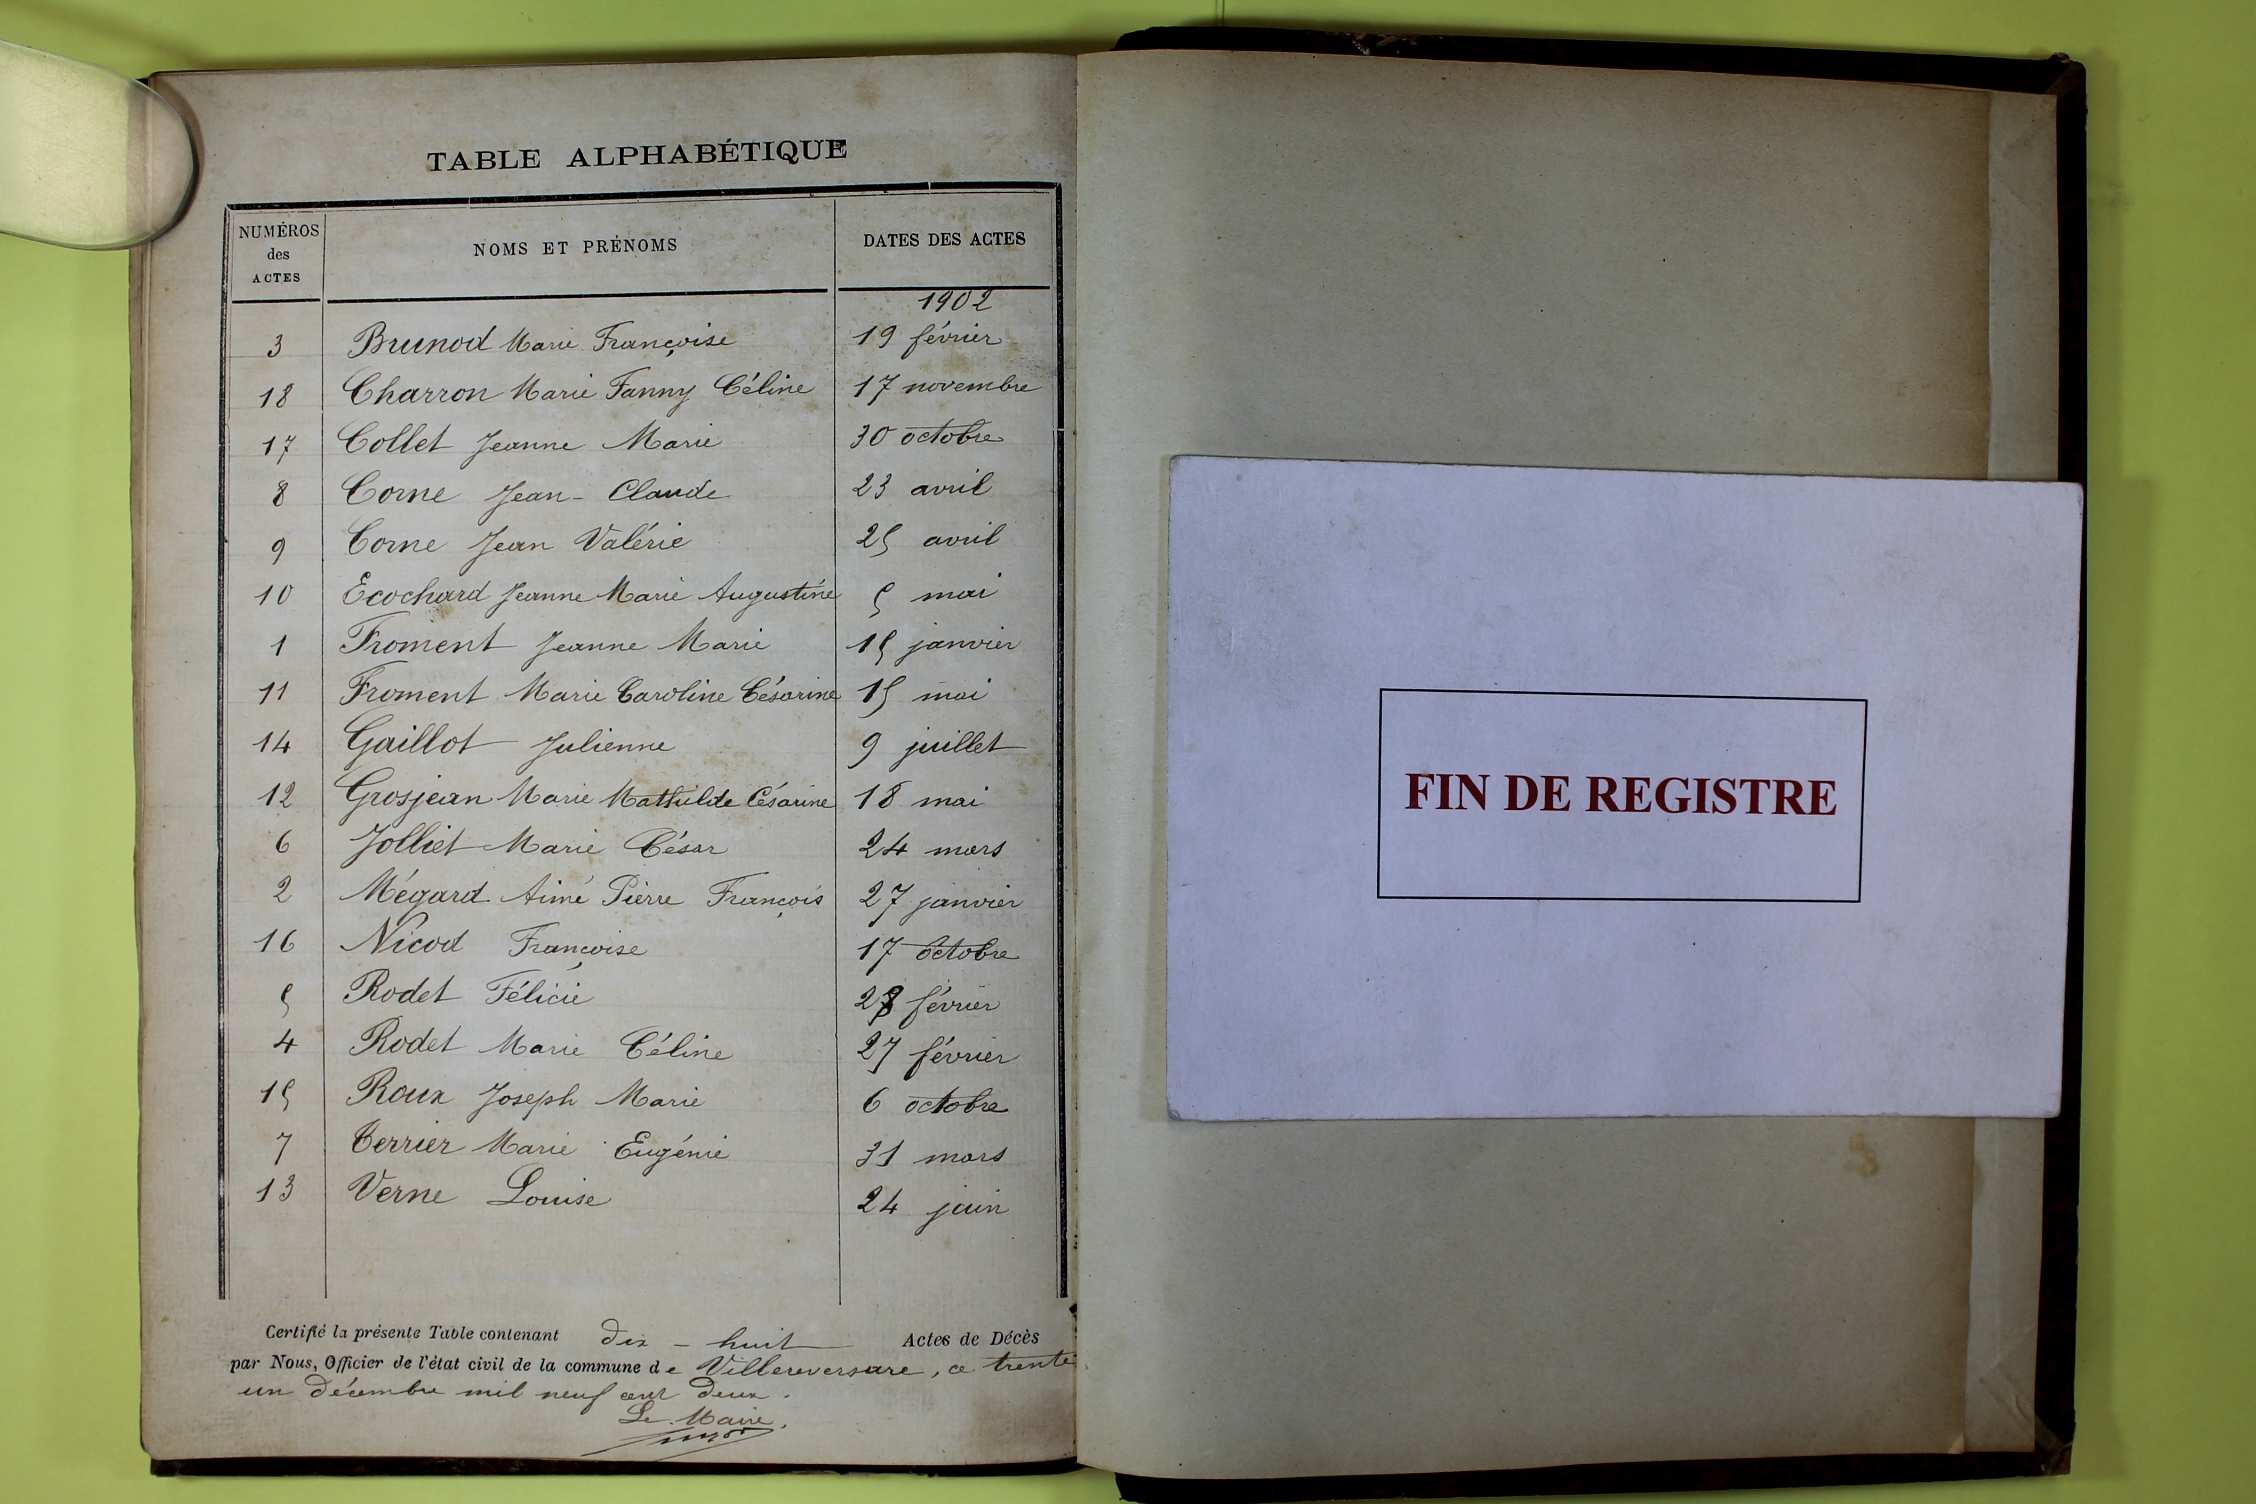 TABLE ALPHABÉTIQUE
NUMÉROS des ACTES NOMS ET PRÉNOMS DATES DES ACTES
1902
3 Brunod Marie Françoise 19 février
18 Charron Marie Fanny Céline 17 novembre
17 Collet Jeanne Marie 30 octobre
8 Corne Jean-Claude 23 avril
9 Corne Jean Valérie 25 avril
10 Ecochard Jeanne Marie Augustine 5 mai
1 Froment Jeanne Marie 15 janvier
11 Froment Marie Caroline Césarine 15 mai
14 Gaillot Julienne 9 juillet
12 Grosjean Marie Mathilde Césarine 18 mai
6 Jolliet Marie César 24 mars
2 Mégard Aimé Pierre François 27 janvier
16 Nicod Françoise 17 octobre
5 Rodet Félicie 28 février
4 Rodet Marie Céline 27 février
15 Roux Joseph Marie 6 octobre
7 Terrier Marie Eugénie 31 mars
13 Verne Louise 24 juin
Certifié la présente Table contenant dix-huit Actes de Décès
par Nous, Officier de l'état civil de la commune de Villereversure, ce trente
un décembre mil neuf cent deux.
Le Maire,
FIN DE REGISTRE